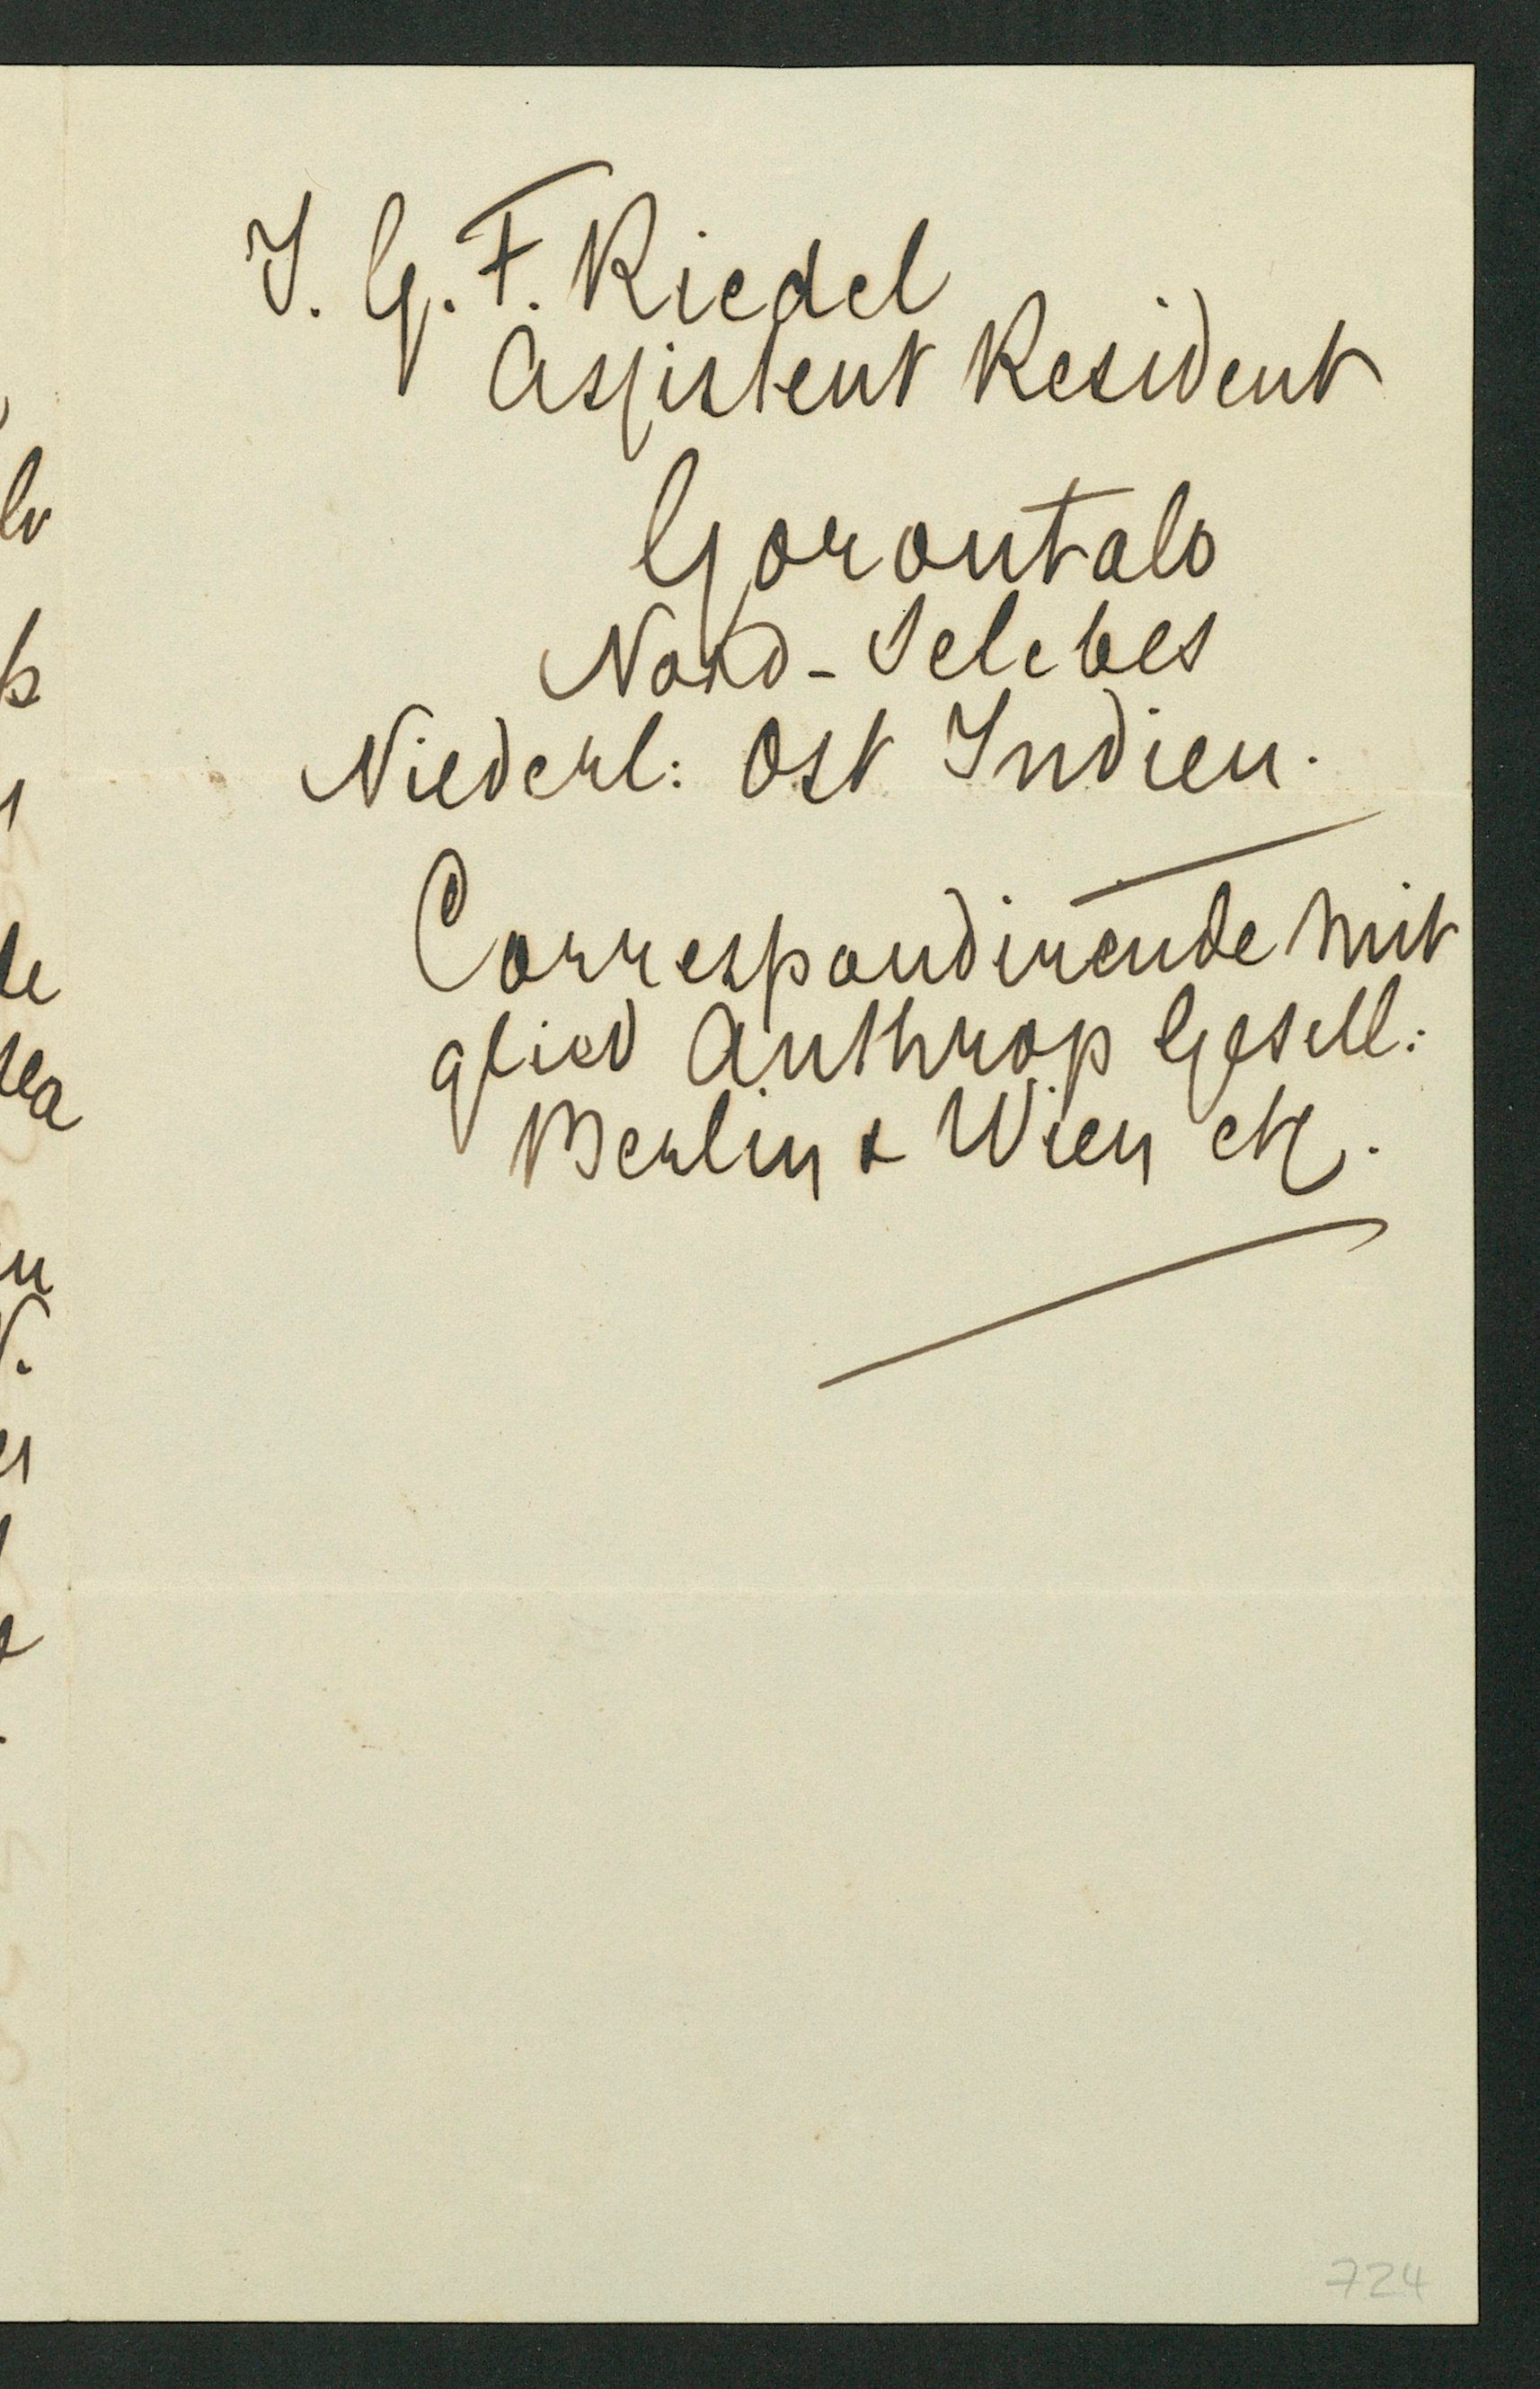 J. G. F. Riedel
Assistent Resident
Gorontalo
Nord-Selebes
Niederl: Ost Indien.
Correspondirende Mit
glied Anthrop Gesell:
Berlin & Wien etc.
724